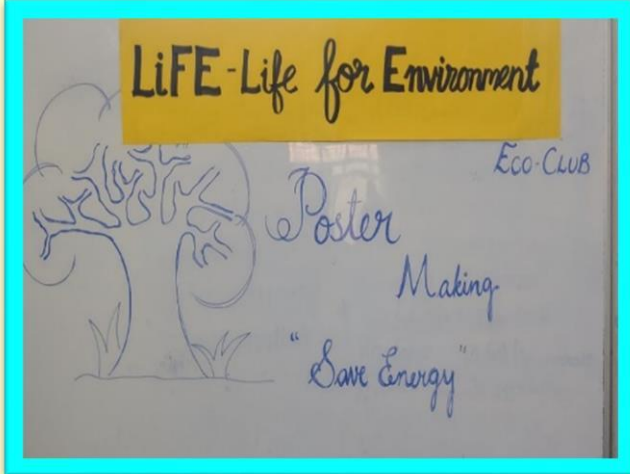 LiFE-Life for Environment
Eco-Club
Poster
Making
"Save Energy"